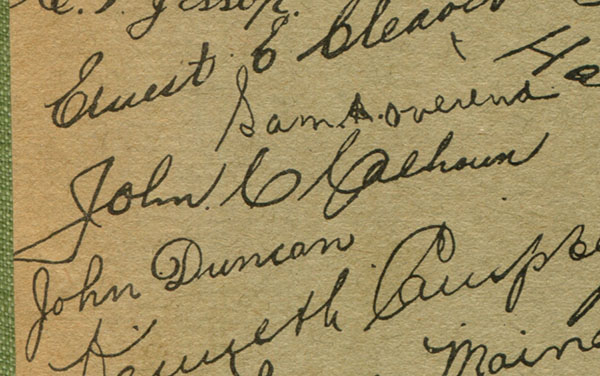 Jessop.
Ernest E Cleaver
Sam. A. Overend.
John C Calhoun
John Duncan
Kenneth